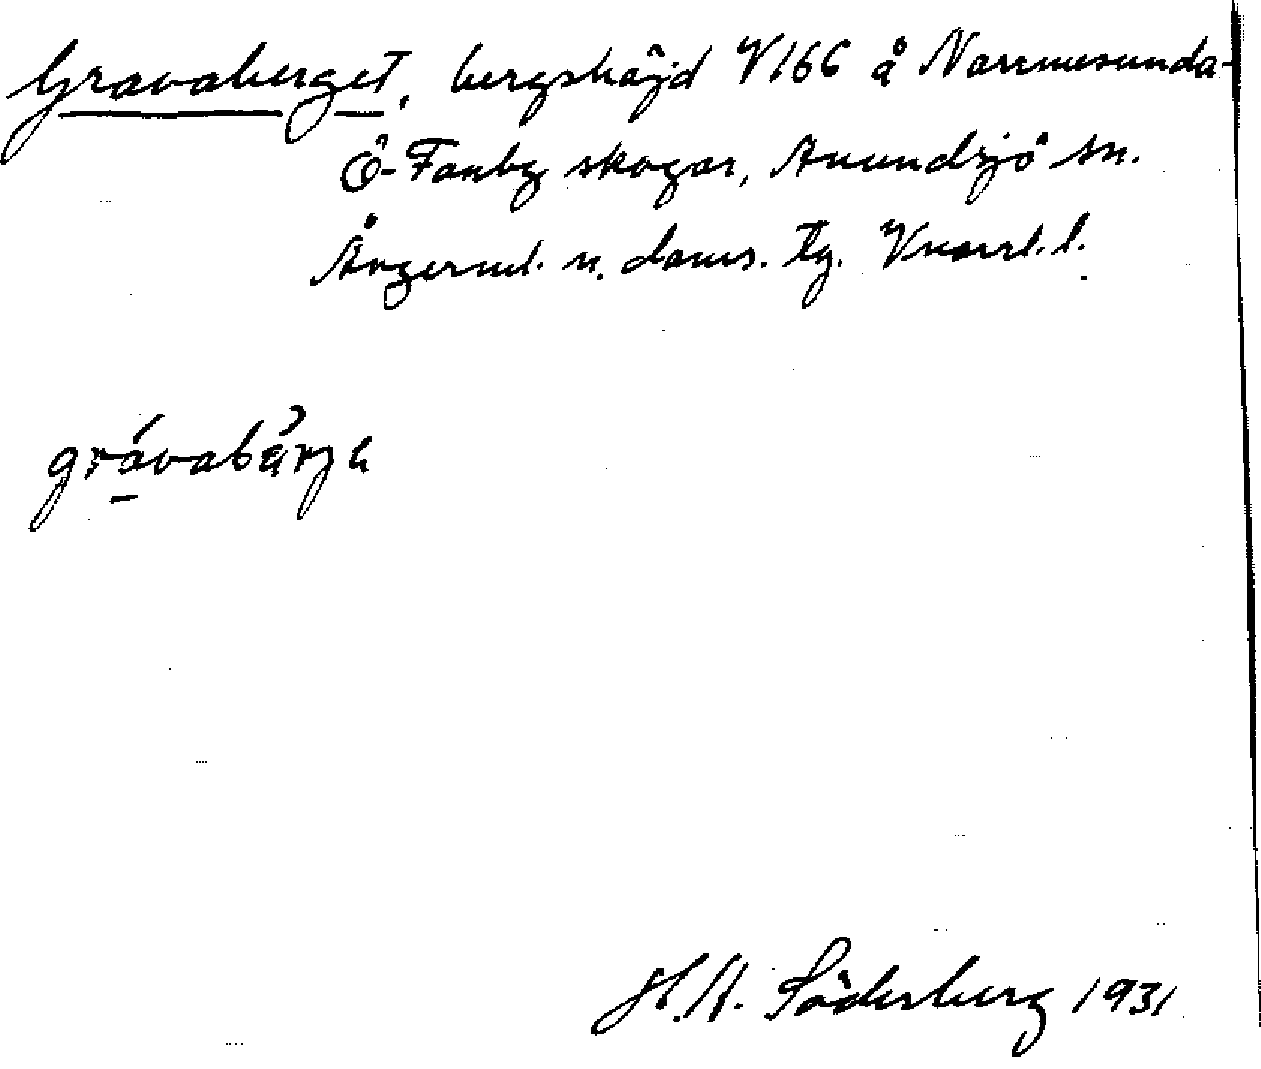 Gravaberget, bergshöjd V166 å Norrmesunda-
Ö-Fanby skogar, Anundsjö sn.
Ångerml. n. doms. tg. Vnorrl. l.
grávabärjɛ
H. A. Söderberg 1931